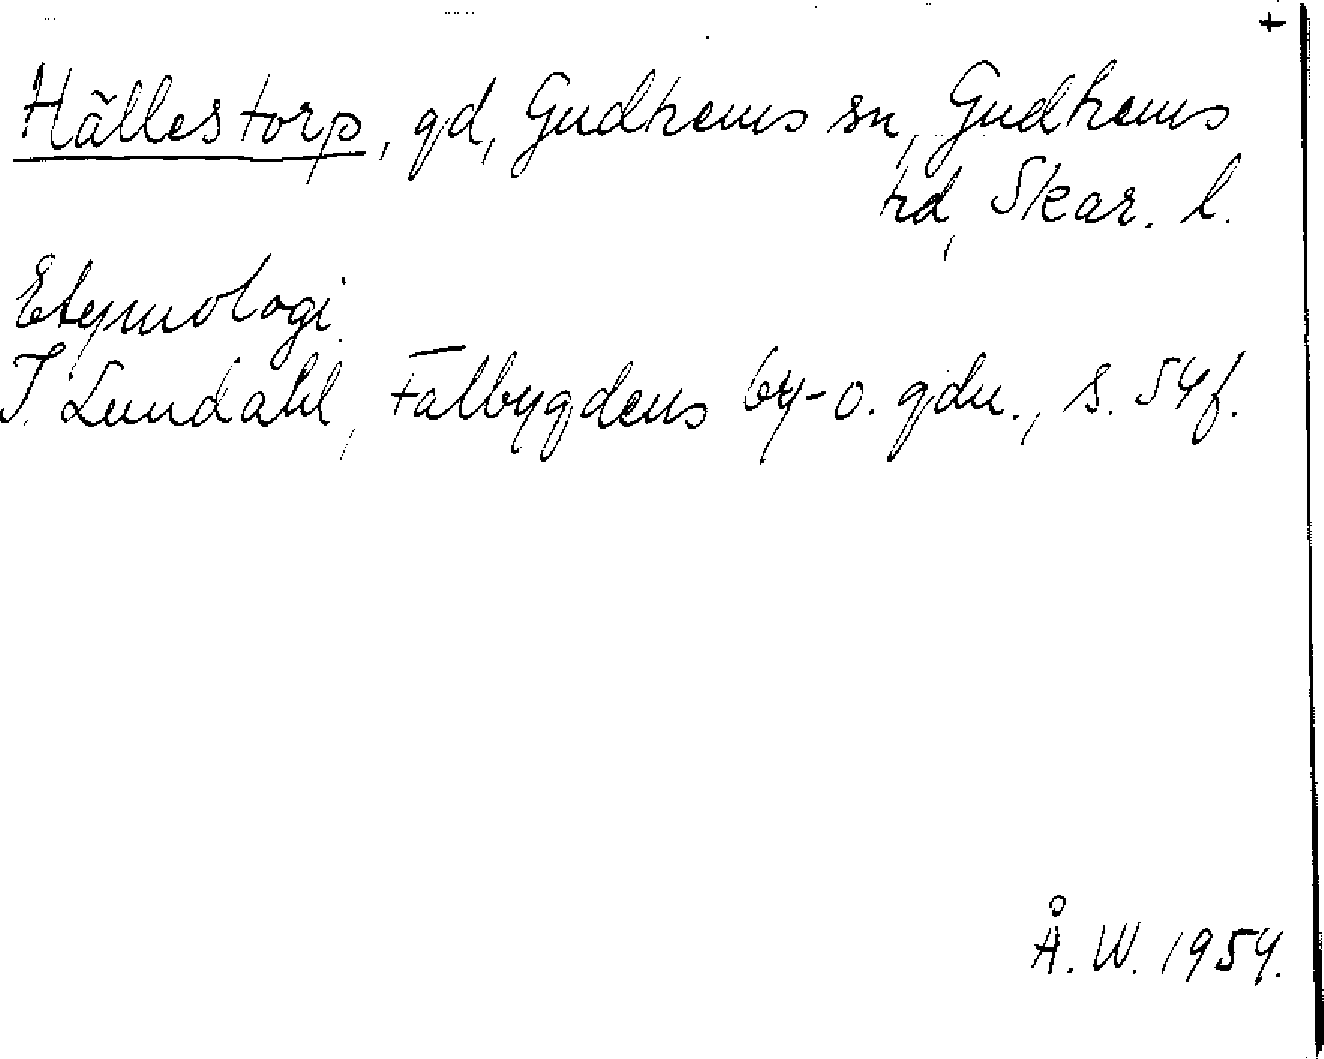 +
Hällestorp, gd, Gudhems sn, Gudhems
hd, Skar. l.
Etymologi.
I. Lundahl, Falbygdens by- o. gdn., s. 54 f.
Å. W. 1954.